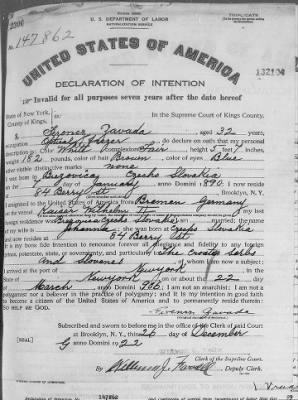 TRIPLICATE
U. S. DEPARTMENT OF LABOR
NATURALIZATION SERVICE
No. 147862
UNITED STATES OF AMERICA
DECLARATION OF INTENTION
Invalid for all purposes seven years after the date hereof
132104
State of New York,
County of Kings,
In the Supreme Court of Kings County.
Zavada, aged 32 years,
occupation, do declare on oath that my personal
description is: Color White, complexion Fair, height 5 feet 7 inches,
weight 182 pounds, color of hair Brown, color of eyes Blue
other visible distinctive marks none
I was born in Czecho Slovakia
on the day of January, anno Domini 1890; I now reside
at 84 Berry St Brooklyn, N. Y.
I emigrated to the United States of America from Bremen Germany
on the vessel Kaiser Wilhelm; my last
foreign residence was Czecho Slovakia; I am married; the name
of my wife is Johanna; she was born at Czecho Slovakia
and now resides at 84 Berry St.
It is my bona fide intention to renounce forever all allegiance and fidelity to any foreign
prince, potentate, state, or sovereignty, and particularly to The Croats Serbs
And Slovenes, of whom I am now a subject;
I arrived at the port of New York, in the
State of New York, on or about the 22 day
of March, anno Domini 1906; I am not an anarchist; I am not a
polygamist nor a believer in the practice of polygamy; and it is my intention in good faith
to become a citizen of the United States of America and to permanently reside therein:
SO HELP ME GOD.
Zavada
Subscribed and sworn to before me in the office of the Clerk of said Court
at Brooklyn, N. Y., this 26 day of December
[SEAL] anno Domini 1922
Clerk of the Supreme Court.
By William J. Deputy Clerk.
147862